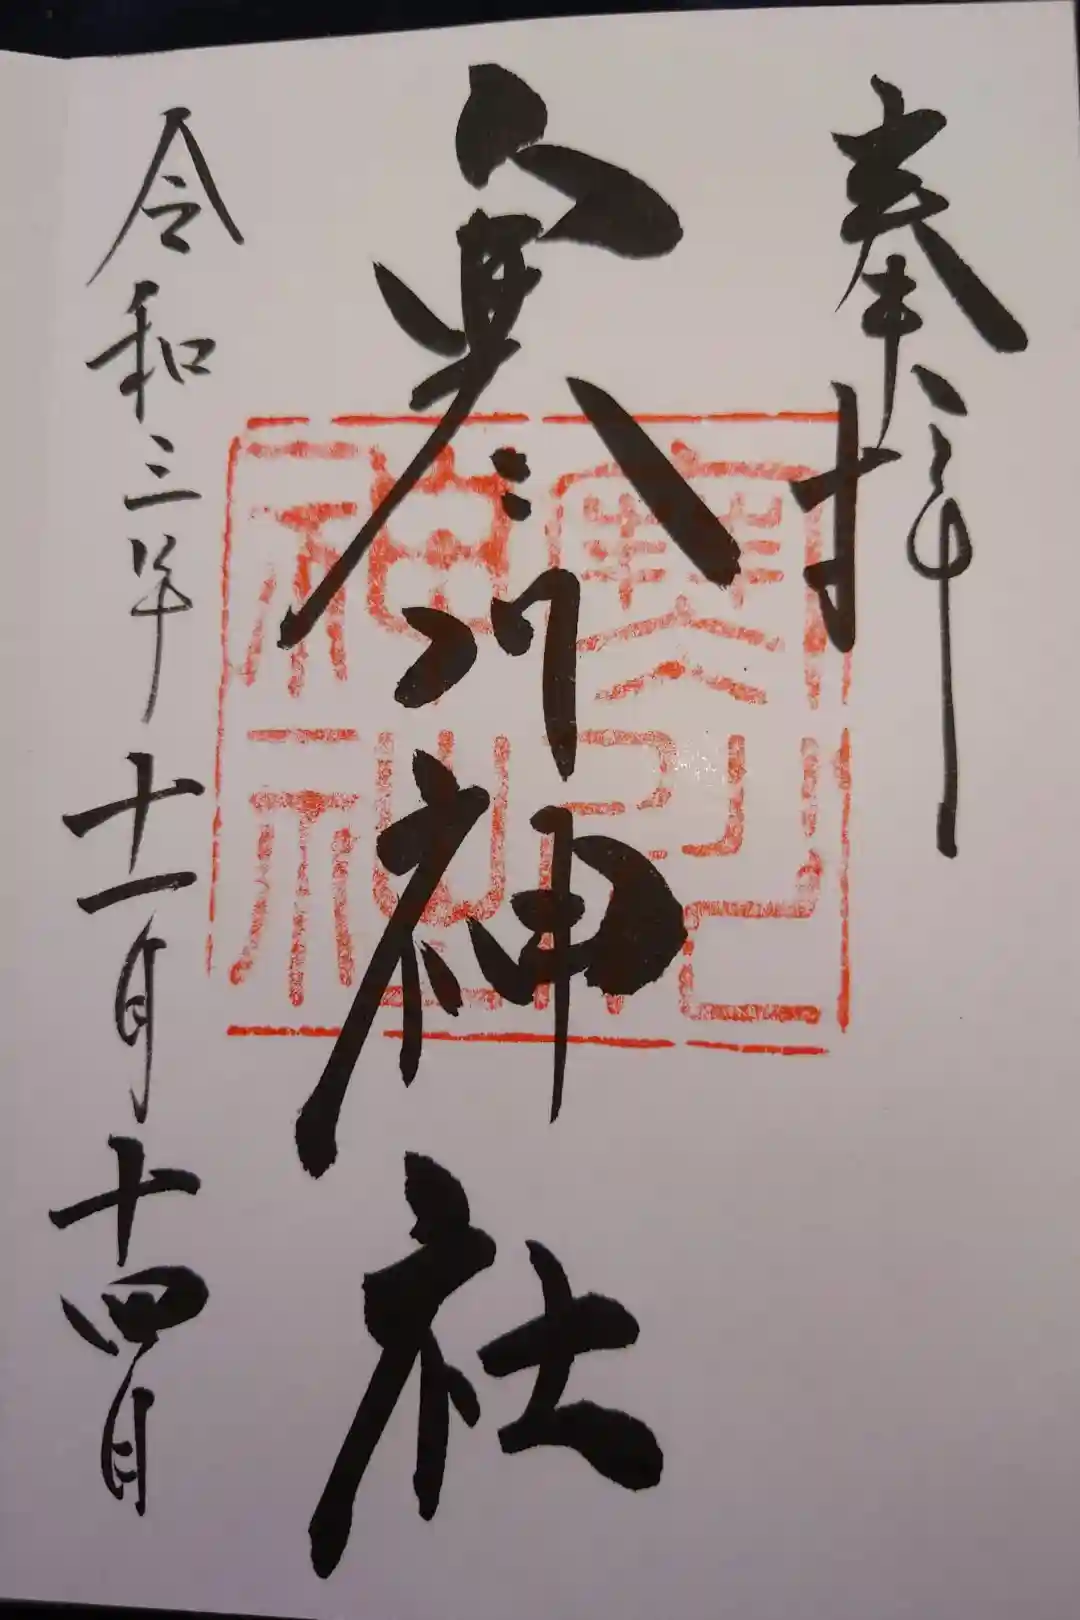 奉拝
寒川神社
令和三年十一月十四日